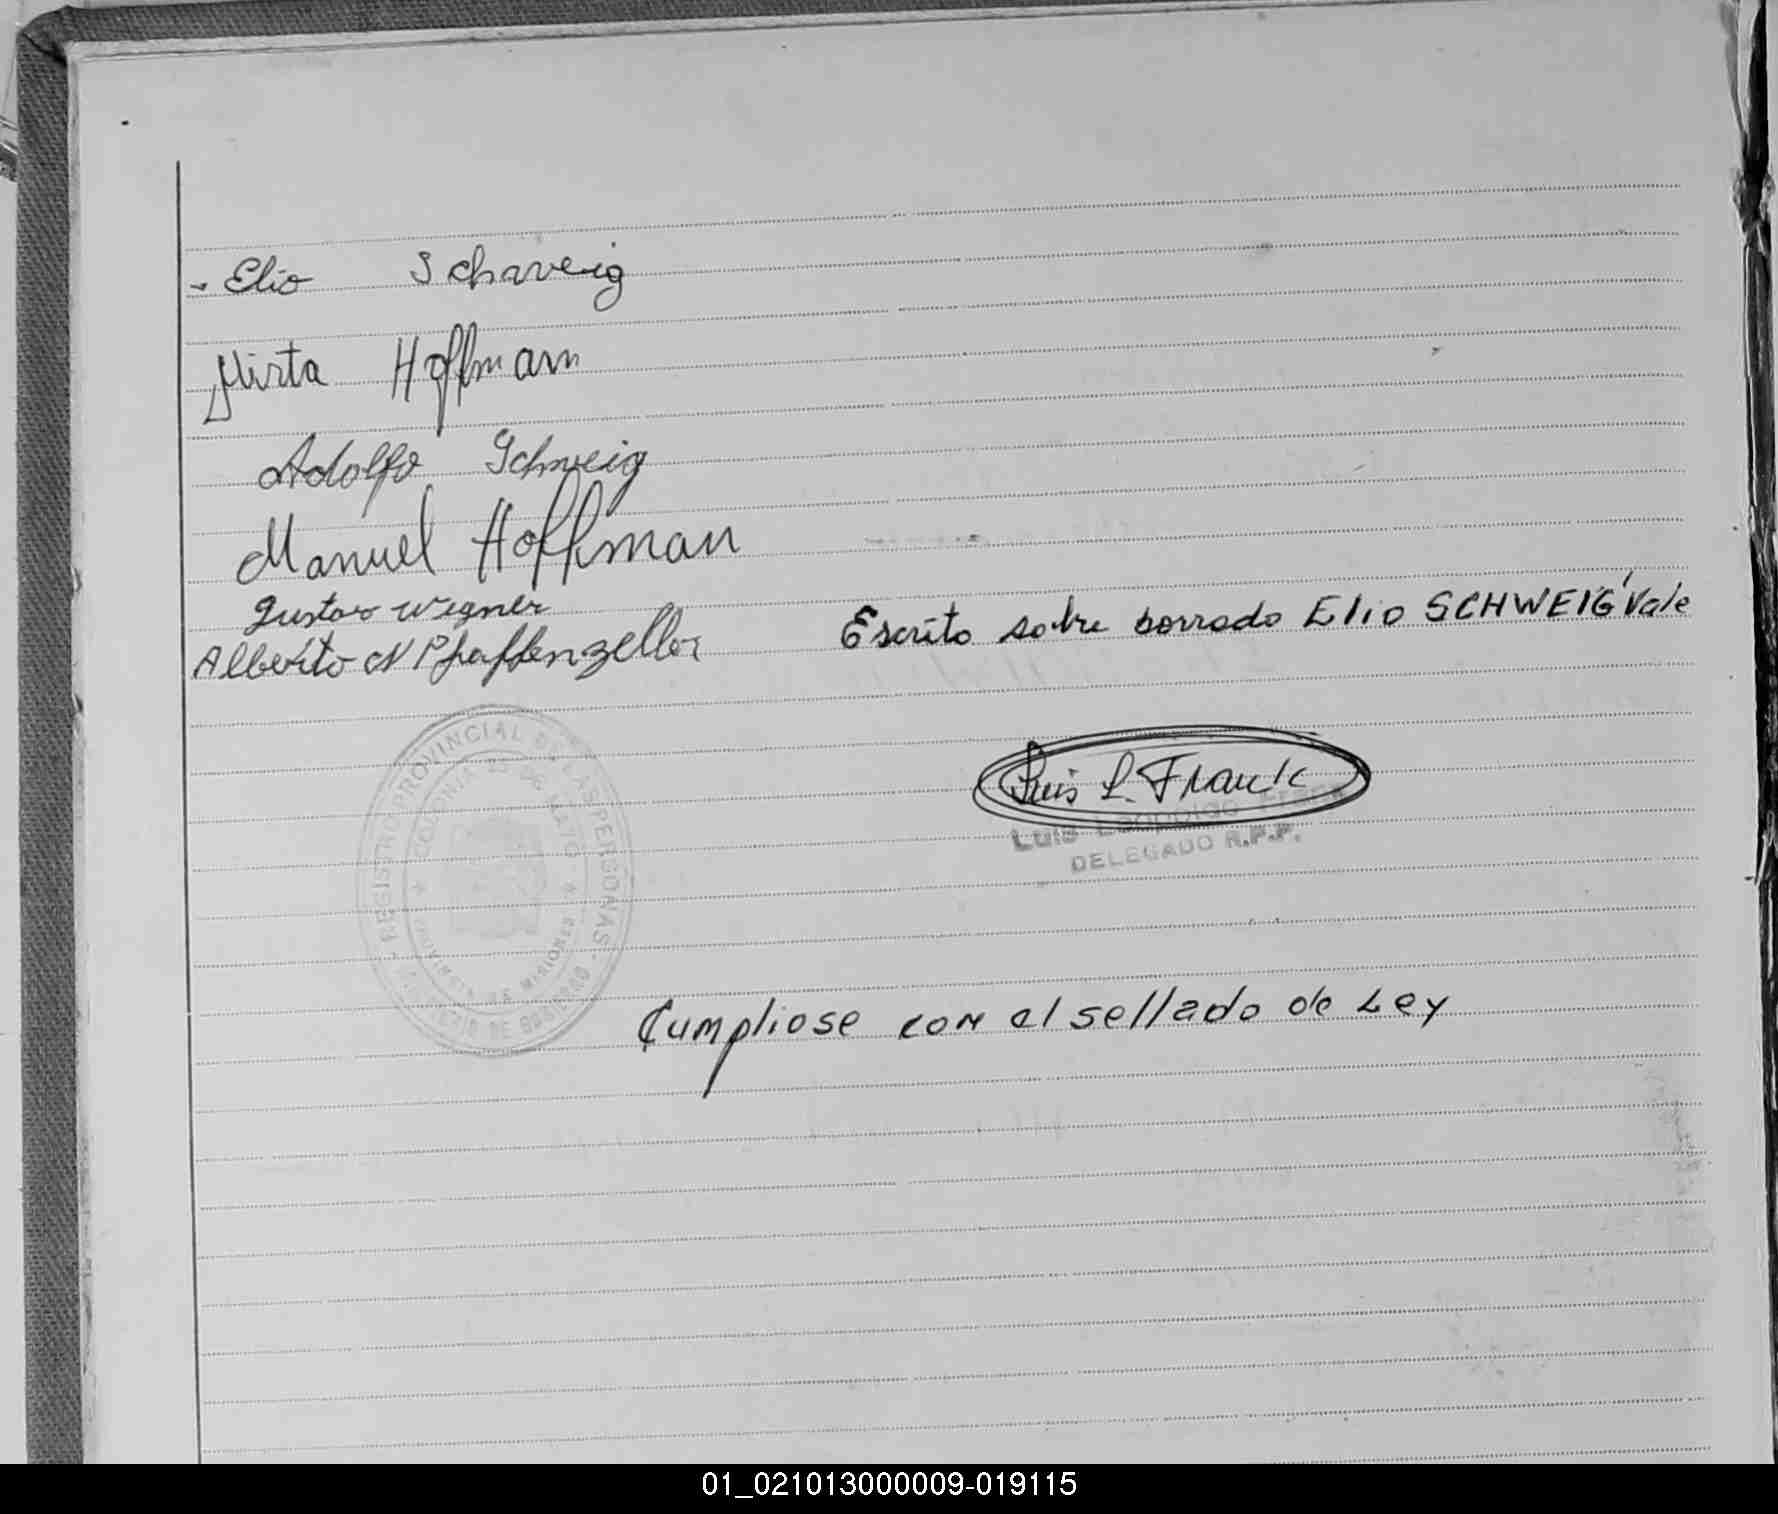 Elio Schweig
Mirta Hoffmann
Adolfo Schweig
Manuel Hoffman
Gustavo Wegner
Alberto N Pfaffenzeller
Escrito sobre borrado Elio SCHWEIG Vale
Luis L. Franck
Luis Leopoldo Franck
DELEGADO R.P.P.
REGISTRO PROVINCIAL DE LAS PERSONAS
MINISTERIO DE GOBIERNO
COLONIA 25 DE MAYO
PROVINCIA DE MISIONES
Cumpliose con el sellado de Ley
01_021013000009-019115